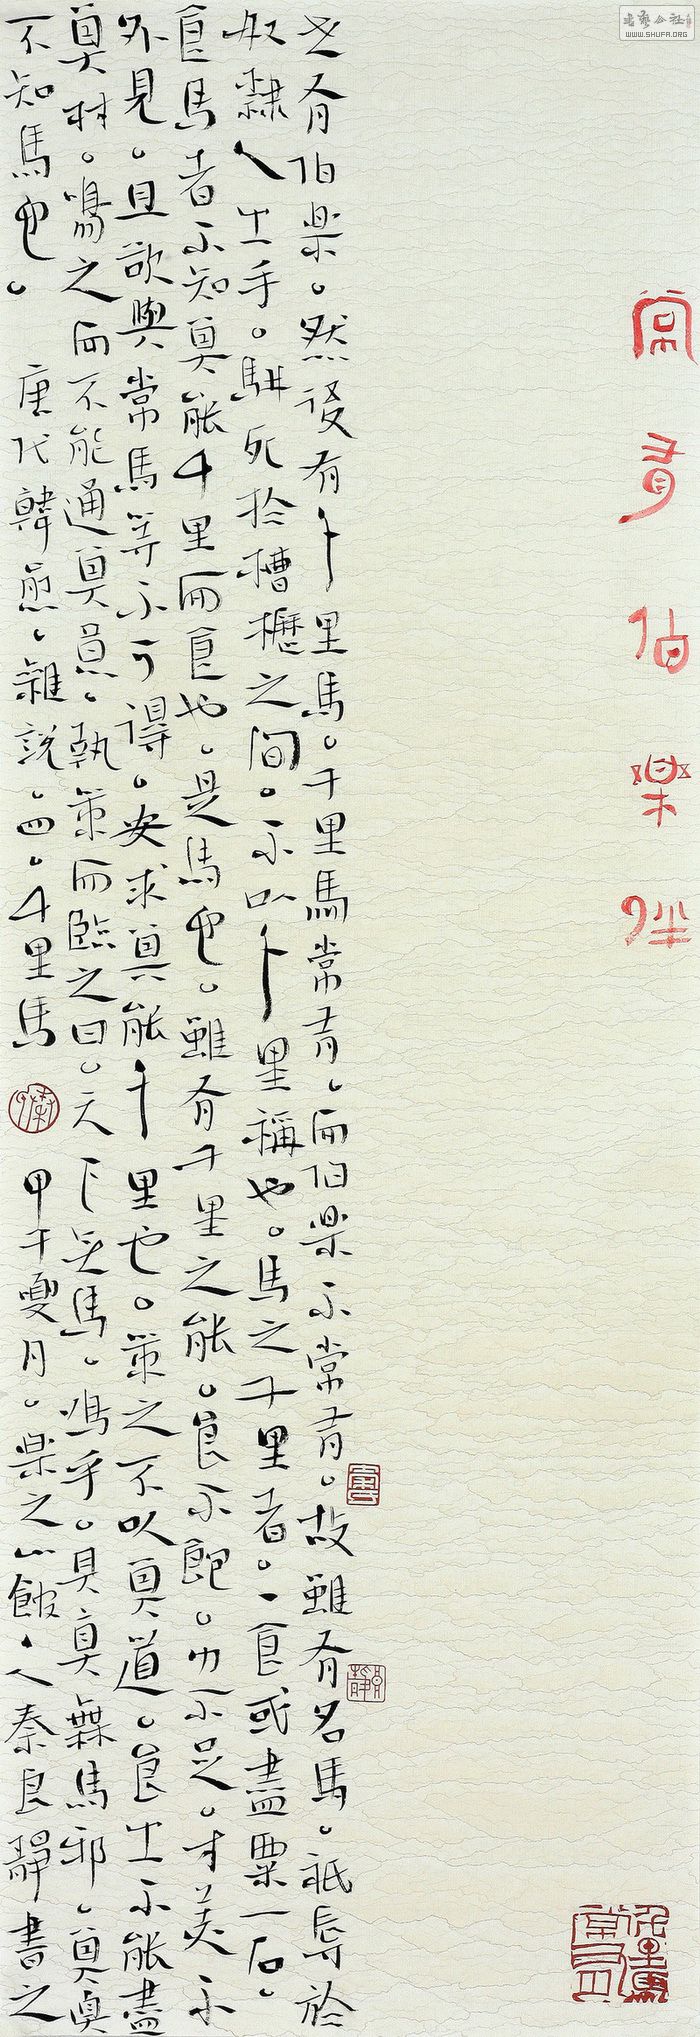 书艺公社
WWW.SHUFA.ORG
常有伯樂
世有伯樂。然後有千里馬。千里馬常有。而伯樂不常有。故雖有名馬。祇辱於
奴隸人之手。駢死於槽櫪之間。不以千里稱也。馬之千里者。一食或盡粟一石。
食馬者不知其能千里而食也。是馬也。雖有千里之能。食不飽。力不足。才美不
外見。且欲與常馬等不可得。安求其能千里也。策之不以其道。食之不能盡
其材。鳴之而不能通其意。執策而臨之曰。天下无馬。嗚乎。其真無馬邪。其真
不知馬也。唐代韓愈。雜說。四。千里馬 甲午夏月。樂之山館人秦良靜書之